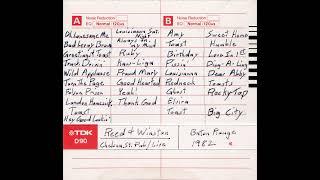 A Noise Reduction
EQ Normal · 120µs
B Noise Reduction
EQ Normal · 120µs
Oh Lonesome Me
Bad Leroy Brown
Greatingst Toast
Truck Drivin'
Wild Applause
Turn the Page
Folsom Prison
London Homesick
Toast
Hey Good Lookin'
Louisiana Sat. Night
Always on my Mind
Ruby
Kaw-Liga
Proud Mary
Good Hearted
Yeah!
Thank Good
Amy
Toast
Birthday
Pissin'
Louisiana
Redneck
Ghost
Elvira
Toast
Sweet Home
Humble
Love In 1st
Ding-A-Ling
Dear Abby
Toasts
Rocky Top
Big City
TDK
D90
Reed & Winston
Chelsea St. Pub / Live
Baton Rouge
1982